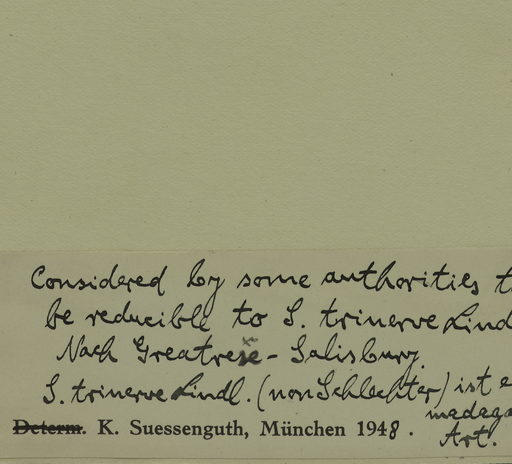 Considered by some authorities t
be reducible to S. trinerve Lind
Nach Greatrex - Salisbury.
S. trinerve Lindl. (non Schlechter) ist e
madaga
Determ. K. Suessenguth, München 1948.
Art.